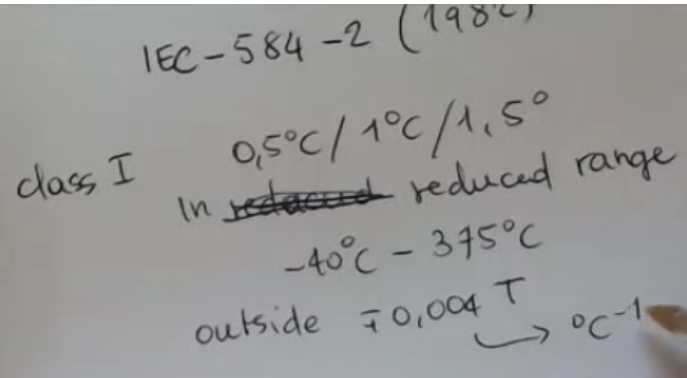 IEC-584-2 (1982)
0,5°C/1°C/1,5°
class I
in reduced range
-40°C - 375°C
outside ∓0,004 T
→ °C⁻¹